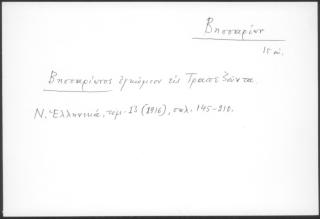 Βησσαρίων
15 αι.
Βησσαρίωνος ἐγκώμιον εἰς Τραπεζοῦντα.
Ν. Ἑλληνικά, τομ. 13 (1916), σελ. 145-210.